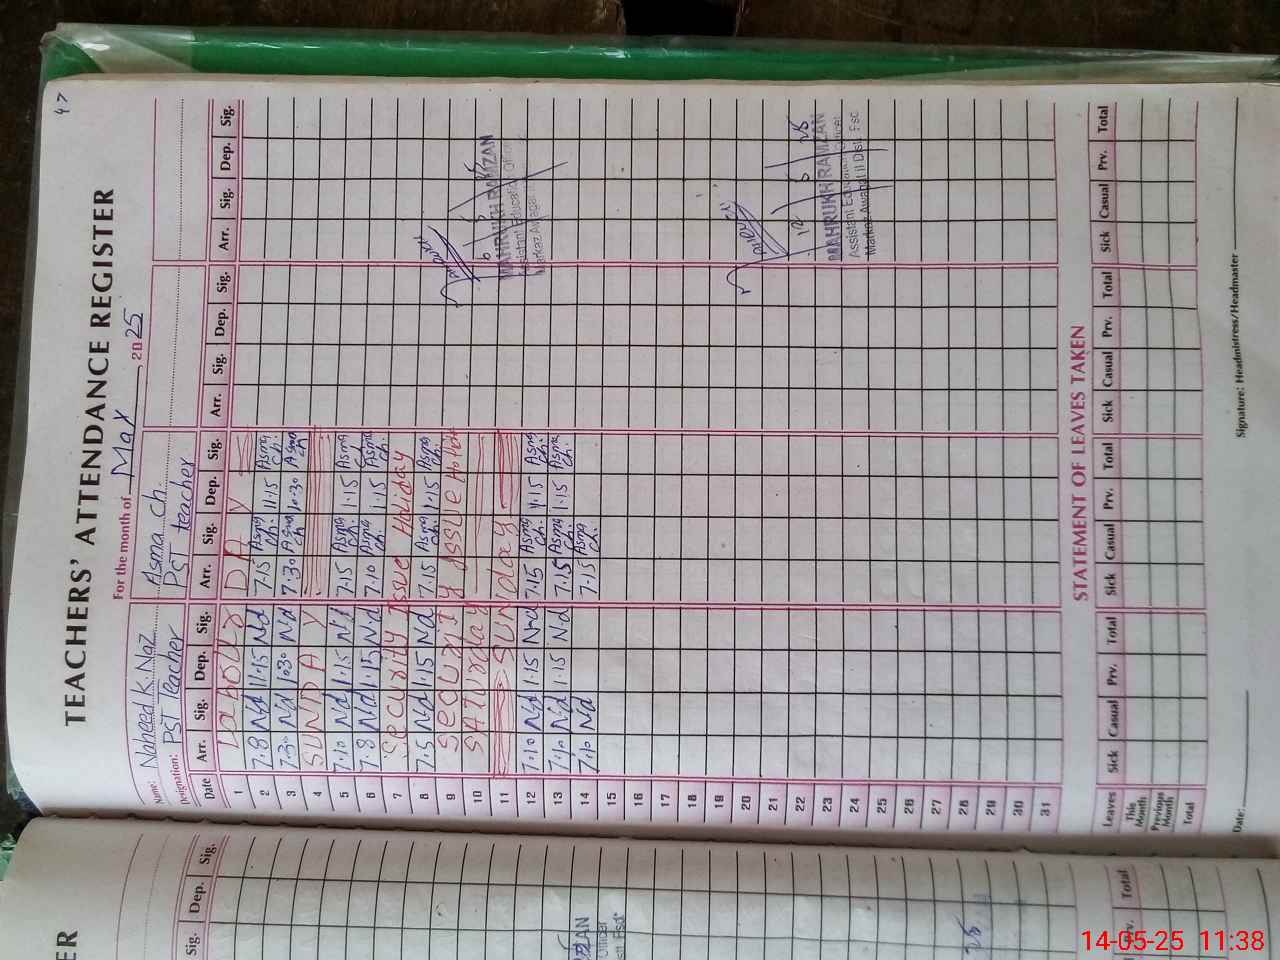 47
TEACHERS' ATTENDANCE REGISTER
For the month of May 2025
Name: Naheed K. Naz Asma ch.
Designation: PST Teacher PST teacher
Date Arr. Sig. Dep. Sig. Arr. Sig. Dep. Sig. Arr. Sig. Dep. Sig. Arr. Sig. Dep. Sig.
1 Labour DAY
2 7.8 Nd 11.15 Nd 7.15 Asma ch. 11.15 Asma ch.
3 7.30 Nd 10.30 Nd 7.30 Asma ch 10.30 Asma ch
4 SUNDAY
5 7.10 Nd 1.15 Nd 7.15 Asma ch. 1.15 Asma ch.
6 7.8 Nd 1.15 Nd 7.10 Asma ch. 1.15 Asma ch.
7 Security Issue Holiday
8 7.5 Nd 1.15 Nd 7.15 Asma ch. 1.15 Asma ch.
9 Security Issue Holiday
10 SATURday
11 SUNday
12 7.10 Nd 1.15 Nd 7.15 Asma ch. 1.15 Asma ch.
13 7.10 Nd 1.15 Nd 7.15 Asma ch. 1.15 Asma ch.
14 7.10 Nd 7.15 Asma ch.
15
16
17
18
19
20
21
22
23
24
25
26
27
28
29
30
31
MAHRUKH RAMZAN
Assistant Education Officer
Markaz Awagat
12 5 25
MAHRUKH RAMZAN
Assistant Education Officer
Markaz Awagat II Dist: Fsd
STATEMENT OF LEAVES TAKEN
Leaves Sick Casual Prv. Total Sick Casual Prv. Total Sick Casual Prv. Total Sick Casual Prv. Total
This Month
Previous Month
Total
Date: Signature: Headmistress/Headmaster
ER
Sig. Dep. Sig.
ZAN
Officer
25
Prv. Total
14-05-25 11:38